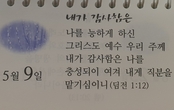 내가 감사함은
나를 능하게 하신
그리스도 예수 우리 주께
내가 감사함은 나를
충성되이 여겨 내게 직분을
맡기심이니 (딤전 1:12)
5월 9일